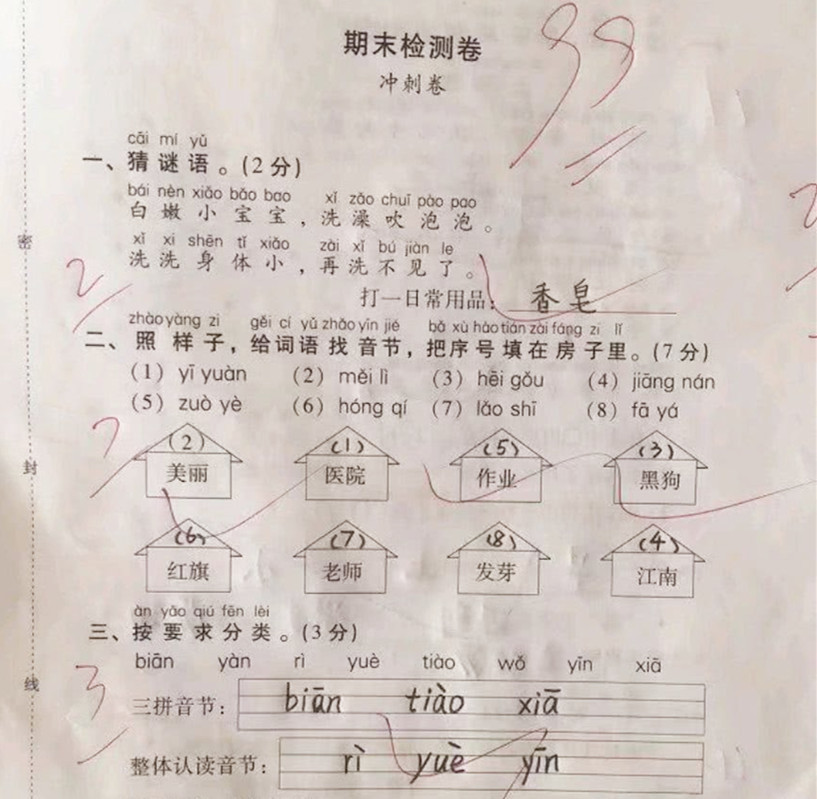 期末检测卷
98
冲刺卷
cāi mí yǔ
一、猜谜语。(2分)
bái nèn xiǎo bǎo bao xǐ zǎo chuī pào pao
白嫩小宝宝,洗澡吹泡泡。
xǐ xi shēn tǐ xiǎo zài xǐ bú jiàn le
洗洗身体小,再洗不见了。
2
打一日常用品: 香皂
zhào yàng zi gěi cí yǔ zhǎo yīn jié bǎ xù hào tián zài fáng zi lǐ
二、照样子,给词语找音节,把序号填在房子里。(7分)
(1) yī yuàn (2) měi lì (3) hēi gǒu (4) jiāng nán
(5) zuò yè (6) hóng qí (7) lǎo shī (8) fā yá
7
(2) (1) (5) (3)
美丽 医院 作业 黑狗
(6) (7) (8) (4)
红旗 老师 发芽 江南
àn yāo qiú fēn lèi
三、按要求分类。(3分)
biān yàn rì yuè tiào wǒ yīn xiā
3
三拼音节: biān tiào xiā
整体认读音节: rì yuè yīn
密
封
线